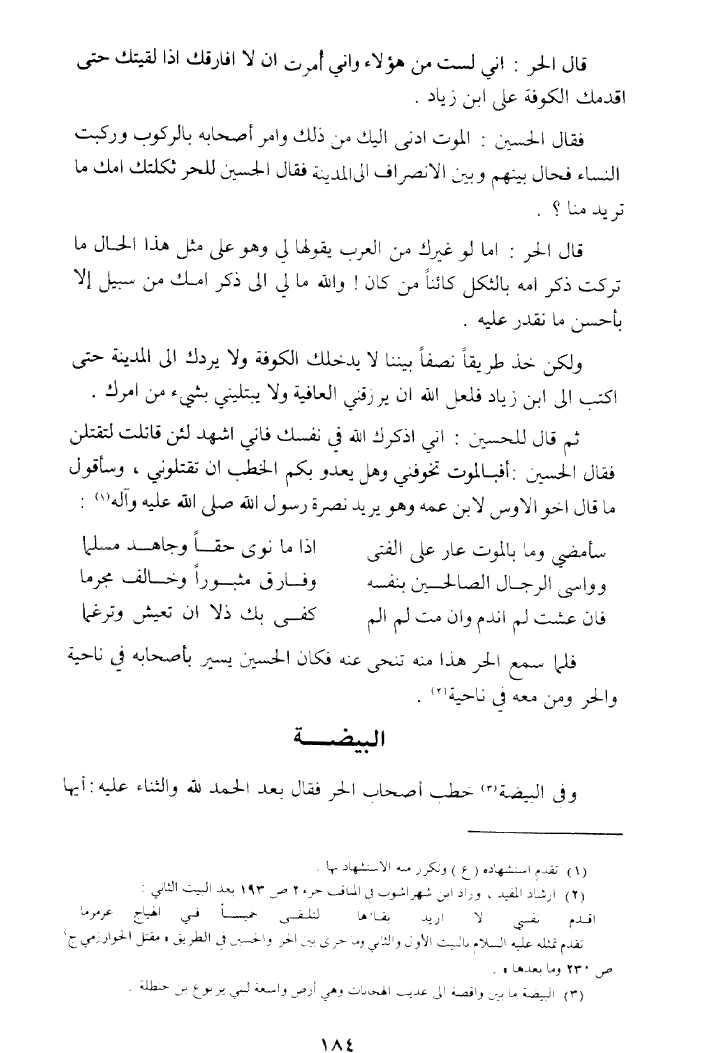 قال الحر : اني لست من هؤلاء واني أمرت ان لا افارقك اذا لقيتك حتى
اقدمك الكوفة على ابن زياد .
فقال الحسين : الموت ادنى اليك من ذلك وامر أصحابه بالركوب وركبت
النساء فحال بينهم وبين الانصراف الى المدينة فقال الحسين للحر ثكلتك امك ما
تريد منا ؟ .
قال الحر : اما لو غيرك من العرب يقولها لي وهو على مثل هذا الحال ما
تركت ذكر امه بالثكل كائناً من كان ! والله ما لي الى ذكر امك من سبيل إلا
بأحسن ما نقدر عليه .
ولكن خذ طريقاً نصفاً بيننا لا يدخلك الكوفة ولا يردك الى المدينة حتى
اكتب الى ابن زياد فلعل الله ان يرزقني العافية ولا يبتليني بشيء من امرك .
ثم قال للحسين : اني اذكرك الله في نفسك فاني اشهد لئن قاتلت لتقتلن
فقال الحسين : أفبالموت تخوفني وهل يعدو بكم الخطب ان تقتلوني ، وسأقول
ما قال اخو الاوس لابن عمه وهو يريد نصرة رسول الله صلى الله عليه وآله(١) :
سأمضي وما بالموت عار على الفتى اذا ما نوى حقاً وجاهد مسلما
وواسى الرجال الصالحين بنفسه وفارق مثبوراً وخالف مجرما
فان عشت لم اندم وان مت لم الم كفى بك ذلا ان تعيش وترغما
فلما سمع الحر هذا منه تنحى عنه فكان الحسين يسير بأصحابه في ناحية
والحر ومن معه في ناحية(٢) .
البيضة
وفي البيضة(٣) خطب أصحاب الحر فقال بعد الحمد لله والثناء عليه : أيها
(١) تقدم استشهاده (ع) وتكرر منه الاستشهاد بها .
(٢) ارشاد المفيد ، وزاد ابن شهراشوب في المناقب جزء ٢ ص ١٩٣ بعد البيت الثاني :
اقدم نفسي لا اريد بقاءها لتلقى خميساً في الهياج عرمرما
تقدم تمثله عليه السلام بالبيت الأول والثاني وما جرى بين الحر والحسين في الطريق « مقتل الخوارزمي ج١
ص ٢٣٠ وما بعدها » .
(٣) البيضة ما بين واقصة الى عذيب الهجانات وهي أرض واسعة لبني يربوع بن حنظلة .
١٨٤